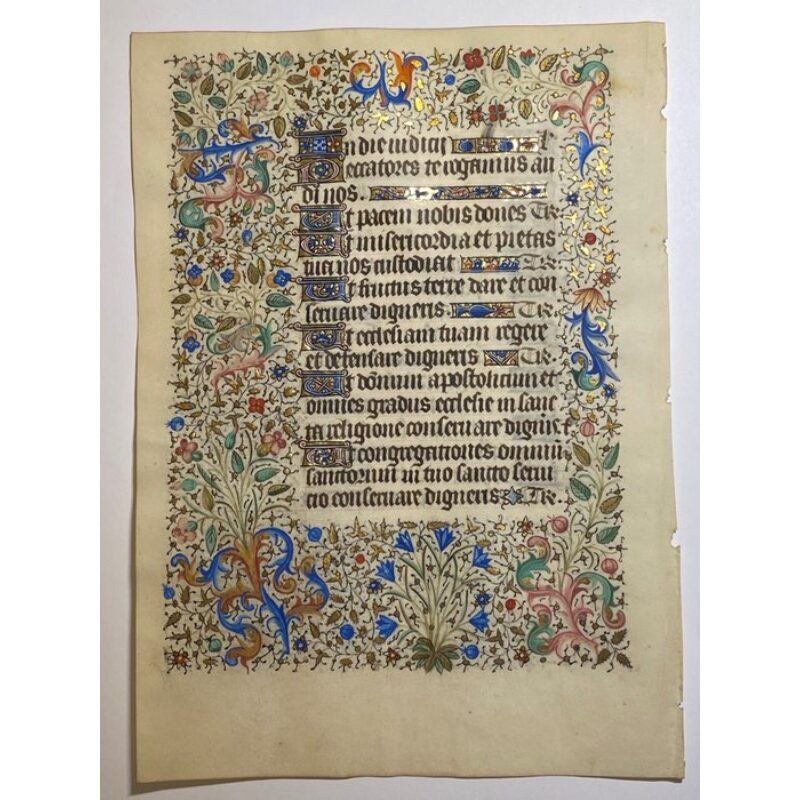 In die iudicii
Peccatores te rogamus au
di nos.
Ut pacem nobis dones TR
Ut misericordia et pietas
tua nos custodiat TR.
Ut fructus terre dare et con
seruare digneris. TR.
Ut ecclesiam tuam regere
et defensare digneris TR.
Ut domnum apostolicum et
omnes gradus ecclesie in sanc
ta religione conseruare digneris t
Ut congregationes omniū
sanctorum in tuo sancto serui
cio conseruare digneris TR.